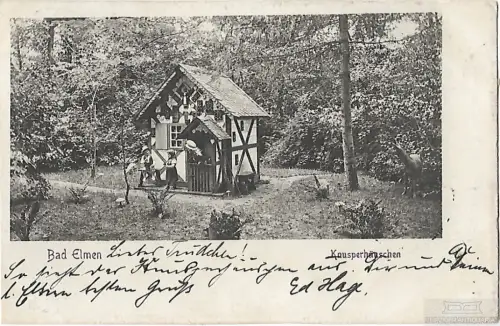 Bad Elmen Liebes Trudchen!
Knusperhäuschen
So sieht das Knusperhäuschen aus. Dir und Deinen
l. Eltern besten Gruß